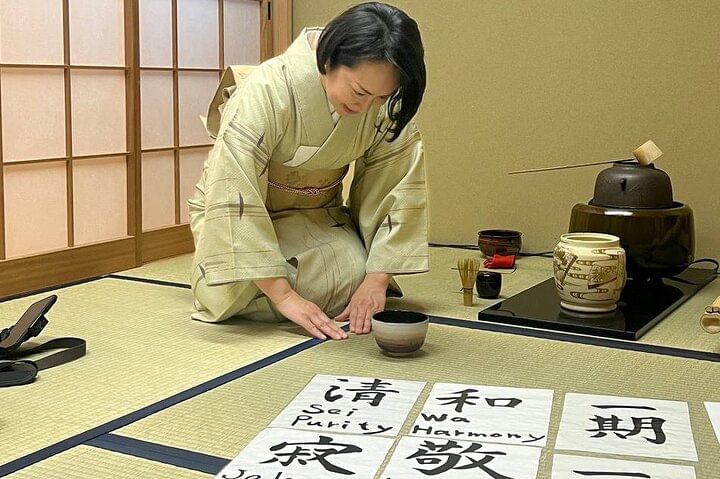 清
Sei
Purity
和
Wa
Harmony
一期
寂
敬
一